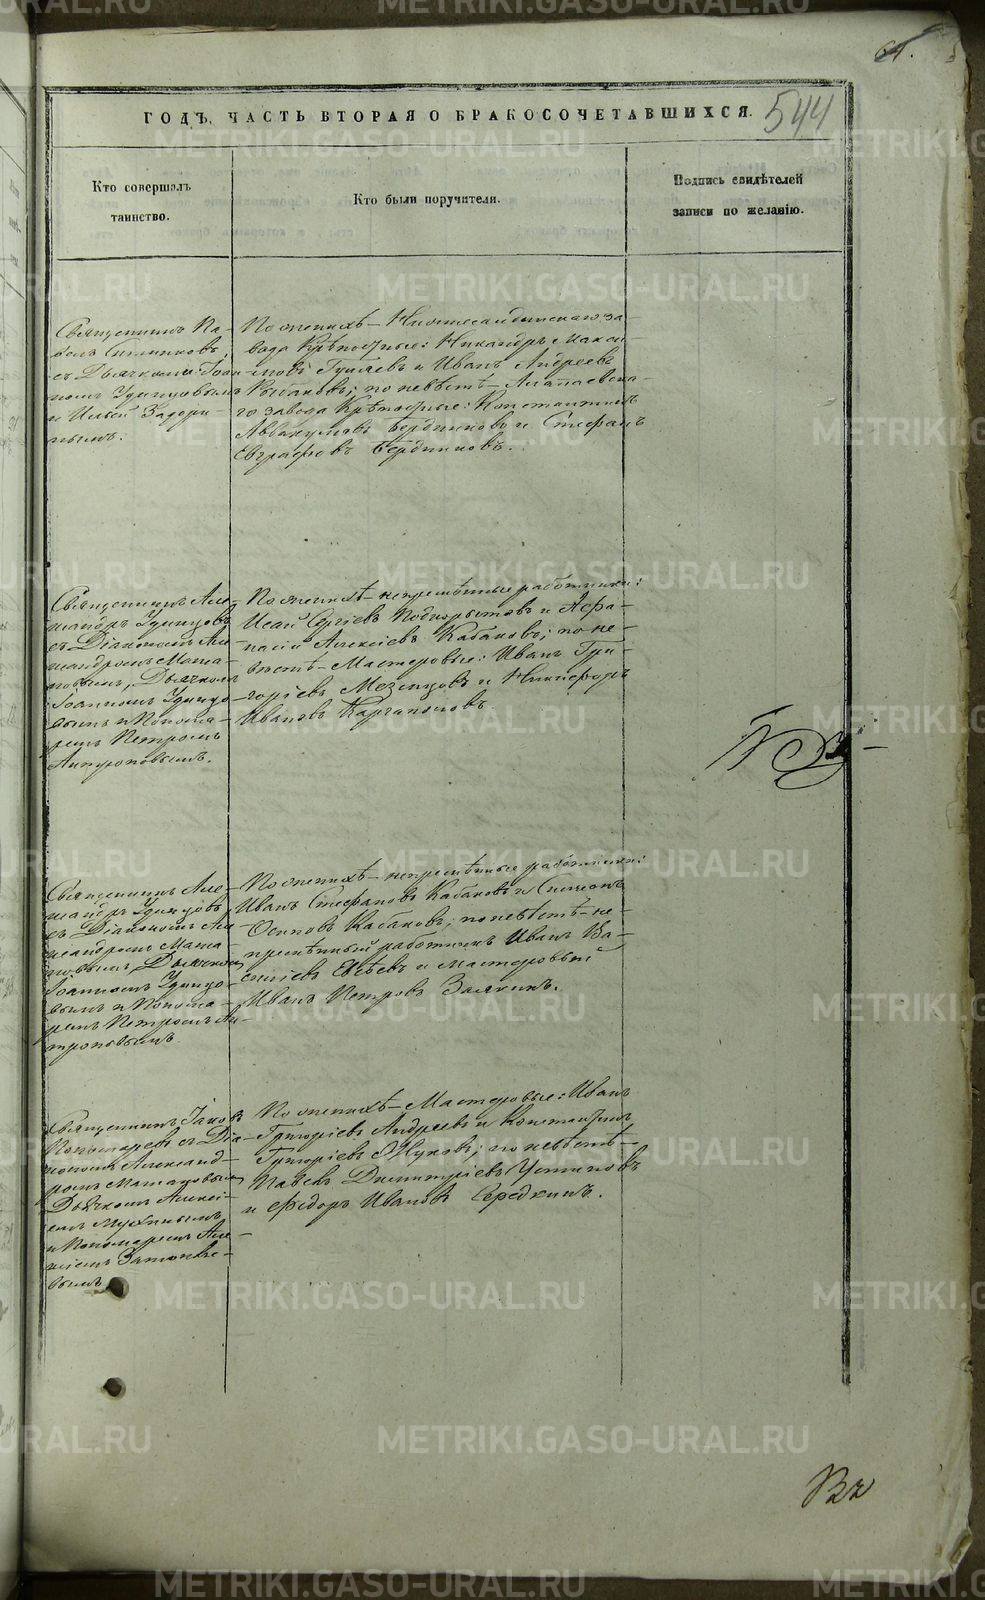 64.
544
ГОДЪ, ЧАСТЬ ВТОРАЯ О БРАКОСОЧЕТАВШИХСЯ.
Кто совершалъ
таинство.
Кто были поручители.
Подпись свидѣтелей
записи по желанію.
Священникъ Па-
велъ
съ Дьячкомъ Іоан-
номъ Удинцовымъ
и Ильей Задори-
нымъ.
По женихѣ – Нижнесалдинскаго за-
вода Крѣпостные: Никандръ Макси-
мовъ Гуляевъ и Иванъ Андреевъ
Рыбаковъ; по невѣстѣ – Алапаевска-
го завода Крѣпостные: Константинъ
Аввакумовъ Бердниковъ и Стефанъ
Евграфовъ Бердниковъ.
Священникъ Але-
ксандръ Удинцовъ
съ Діакономъ Але-
ксандромъ
Дьячкомъ
Іоанномъ Удинцо-
вымъ и Понома-
ремъ Петромъ
Антроповымъ.
По женихѣ – непремѣнные работники:
Исай Сергіевъ Подкорытовъ и Аѳа-
насій Алексіевъ Кабаковъ; по не-
вѣстѣ – Мастеровые: Иванъ Гри-
горіевъ Мезенцовъ и Никифоръ
Ивановъ Каргаполовъ.
Священникъ Але-
ксандръ Удинцовъ
съ Діакономъ Але-
ксандромъ
Дьячкомъ
Іоанномъ Удинцо-
вымъ и Понома-
ремъ Петромъ Ан-
троповымъ.
По женихѣ – непремѣнные работники:
Иванъ Стефановъ Кабаковъ и Симеонъ
Осиповъ Кабаковъ; по невѣстѣ – не-
премѣнный работникъ Иванъ Ва-
силіевъ Евсѣевъ и мастеровый
Иванъ Петровъ Залякинъ.
Священникъ Іаковъ
Пономаревъ съ Діа-
кономъ Александ-
ромъ
Дьячкомъ Алексі-
емъ Мухинымъ
и Пономаремъ Але-
ксіемъ
вымъ
По женихѣ – Мастеровые: Иванъ
Григоріевъ Андреевъ и Константинъ
Григоріевъ Жуковъ; по невѣстѣ –
Павелъ Димитріевъ Устиновъ
и Ѳедоръ Ивановъ Середкинъ.
METRIKI.GASO-URAL.RU